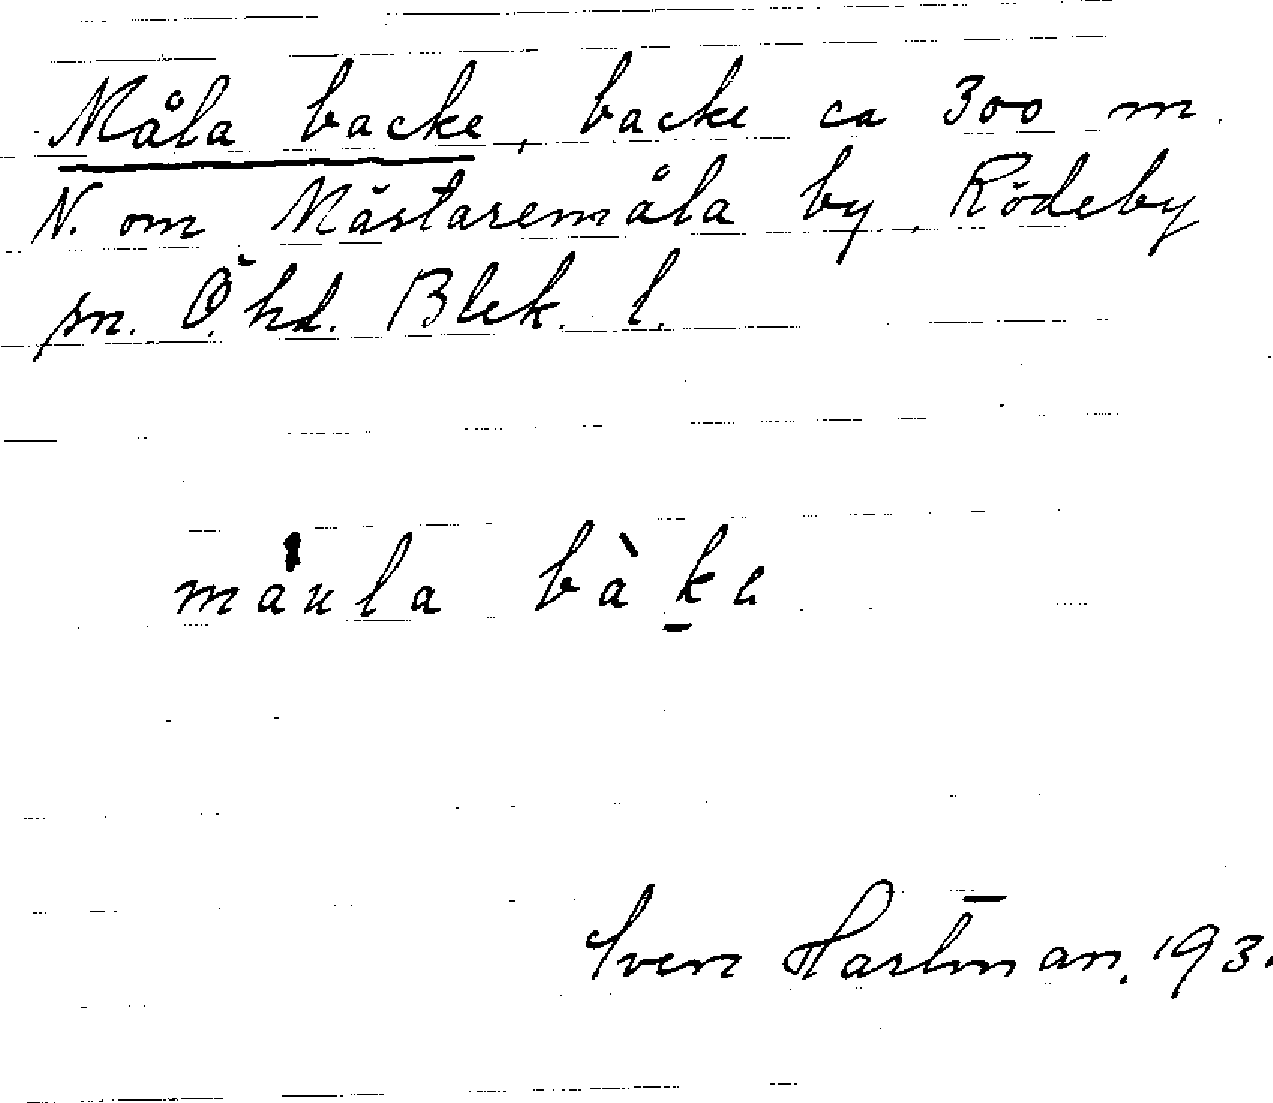 Måla backe, backe ca 300 m.
N. om Mästaremåla by, Rödeby
sn. Ö. hd. Blek. l.
màula bàke
Sven Hartman. 193.